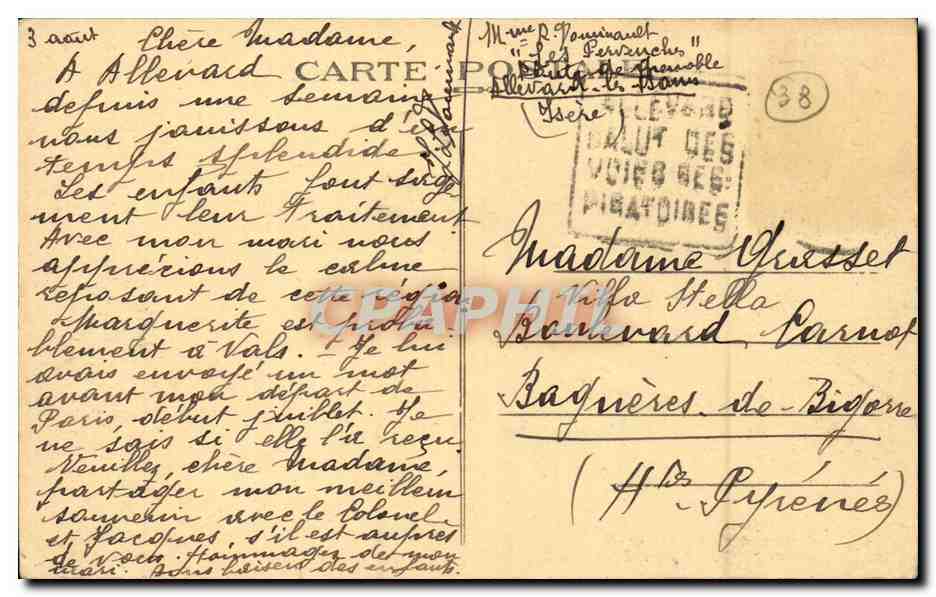 3 août Chère Madame,
A Allevard
depuis une semaine
nous jouissons d'un
temps splendide.
Les enfants font sage-
ment leur traitement
Avec mon mari nous
apprécions le calme
reposant de cette région
Marguerite est proba-
blement à Vals. - Je lui
avais envoyé un mot
avant mon départ de
Paris, début juillet. Je
ne sais si elle l'a reçu
Veuillez, chère Madame,
partager mon meilleur
souvenir avec le Colonel
et Jacques, s'il est auprès
de vous. Hommages de mon
mari. Bons baisers des enfants.
CARTE POSTALE
Mme R.
"Les Pervenches"
Route de Grenoble
Allevard-les-Bains
(Isère)
ALLEVARD
SALUT DES
VOIES RES-
PIRATOIRES
38
Madame Grasset
Villa Stella
Boulevard Carnot
Bagnères-de-Bigorre
(Htes Pyrénées)
CPAPHIL